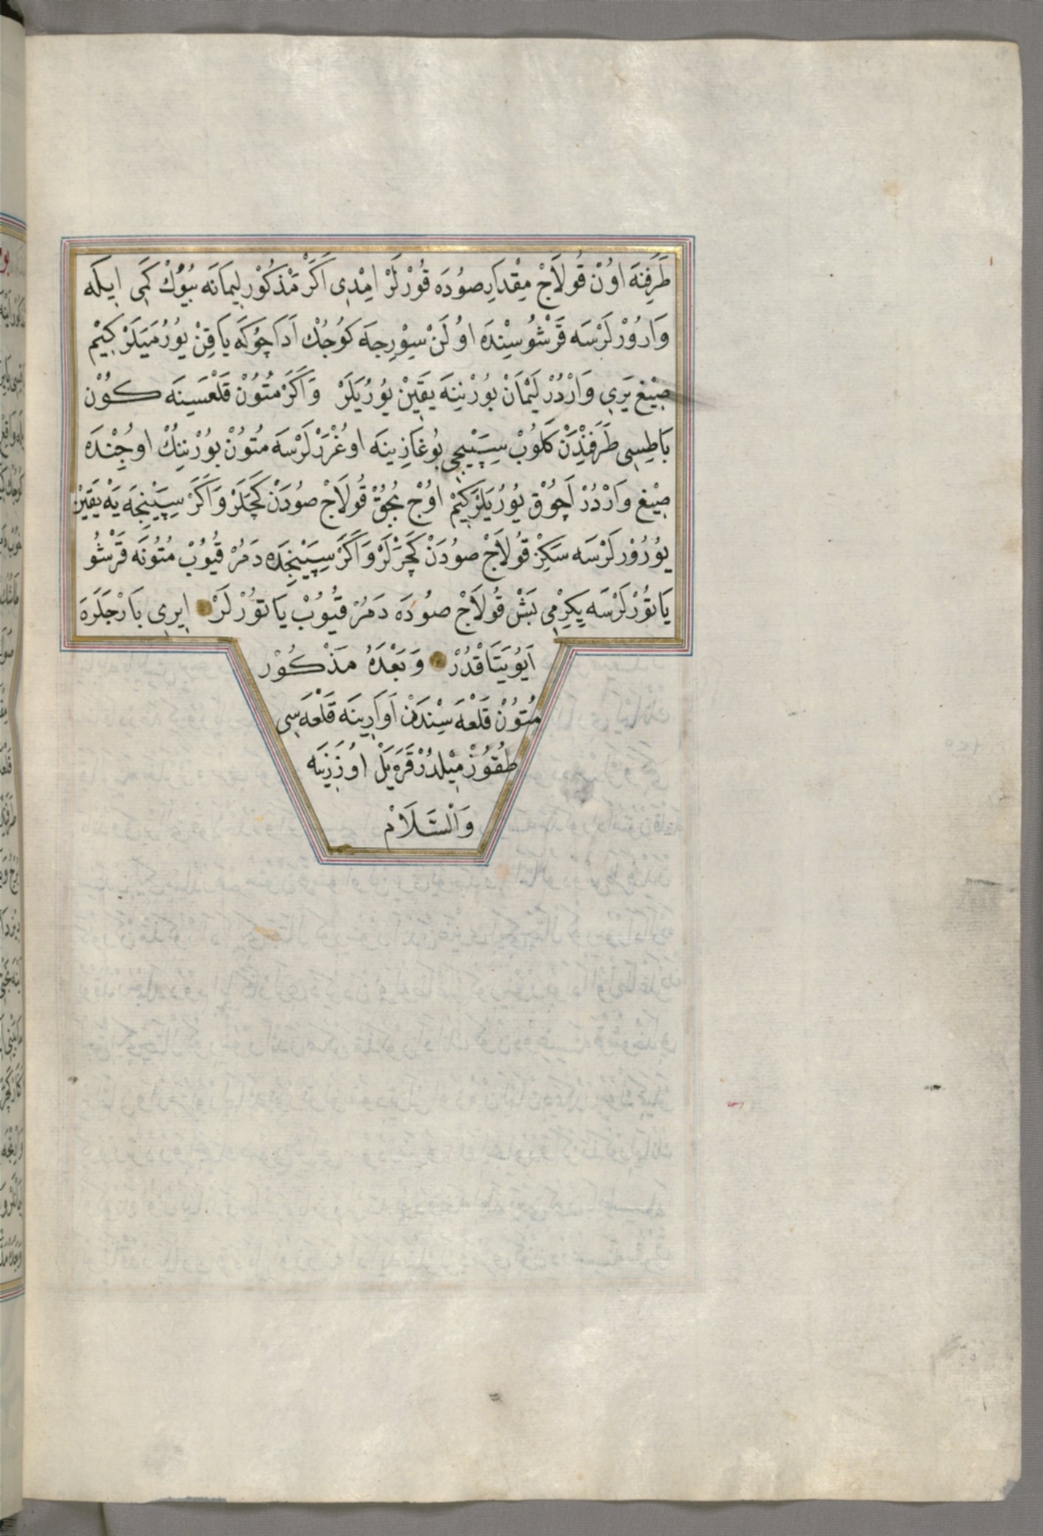 طَرَفِنَه اوُنْ قُولَاجْ مِقْدَارِ صُودَه قُورْلَرْ اِمْدِی اَكَرْ مَذْكُورْ لِيمَانَه بُيُوكْ كَمِی اِيلَه
وَارُورْلَرْسَه قَرْشُوسِنْدَه اوُلَنْ سِيوْرِجَه كوُجُكْ اَدَاجُوكَه يَاقِنْ يوُرُمَيَلَرْ كِيمْ
صِيْغ يَرِی وَارْدُرْ لِيمَانْ بُورْنِينَه يَقِينْ يوُرُيَلَرْ وَاَكَرْ مُتُونْ قَلْعَسِينَه كُونْ
بَاطِيسِی طَرَفِنْدَنْ كَلُوبْ سِپَنْجِی بُوغَازِينَه اوُغْرَرْلَرْسَه مُتُونْ بُورْنِينُكْ اوُجِنْدَه
صِيْغ وَارْدُرْ اَچُوقْ يوُرُيَلَرْ كِيمْ اوُچْ بُچُقْ قُولَاجْ صُودَنْ كَچَرْلَرْ وَاَكَرْ سِپَنْجَه يَه يَقِينْ
يوُرُورْلَرْسَه سَكِزْ قُولَاجْ صُودَنْ كَچَرْلَرْ وَاَكَرْ سِپَنْجَدَه دَمُرْ قُيُوبْ مُتُونَه قَرْشُو
يَاتُورْلَرْسَه يِكِرْمِی بَشْ قُولَاجْ صُودَه دَمُرْ قُيُوبْ يَاتُورْلَرْ اِيرِی بَارْجَلَرَه
اَيُو يَتَاقْدُرْ وَبَعْدَهُ مَذْكُورْ
مُتُونْ قَلْعَه سِنْدَنْ اَوَارِينَه قَلْعَه سِی
طُقُوزْ مِيلْدُرْ قَرَه يَلْ اوُزَرِينَه
وَالسَّلَامْ